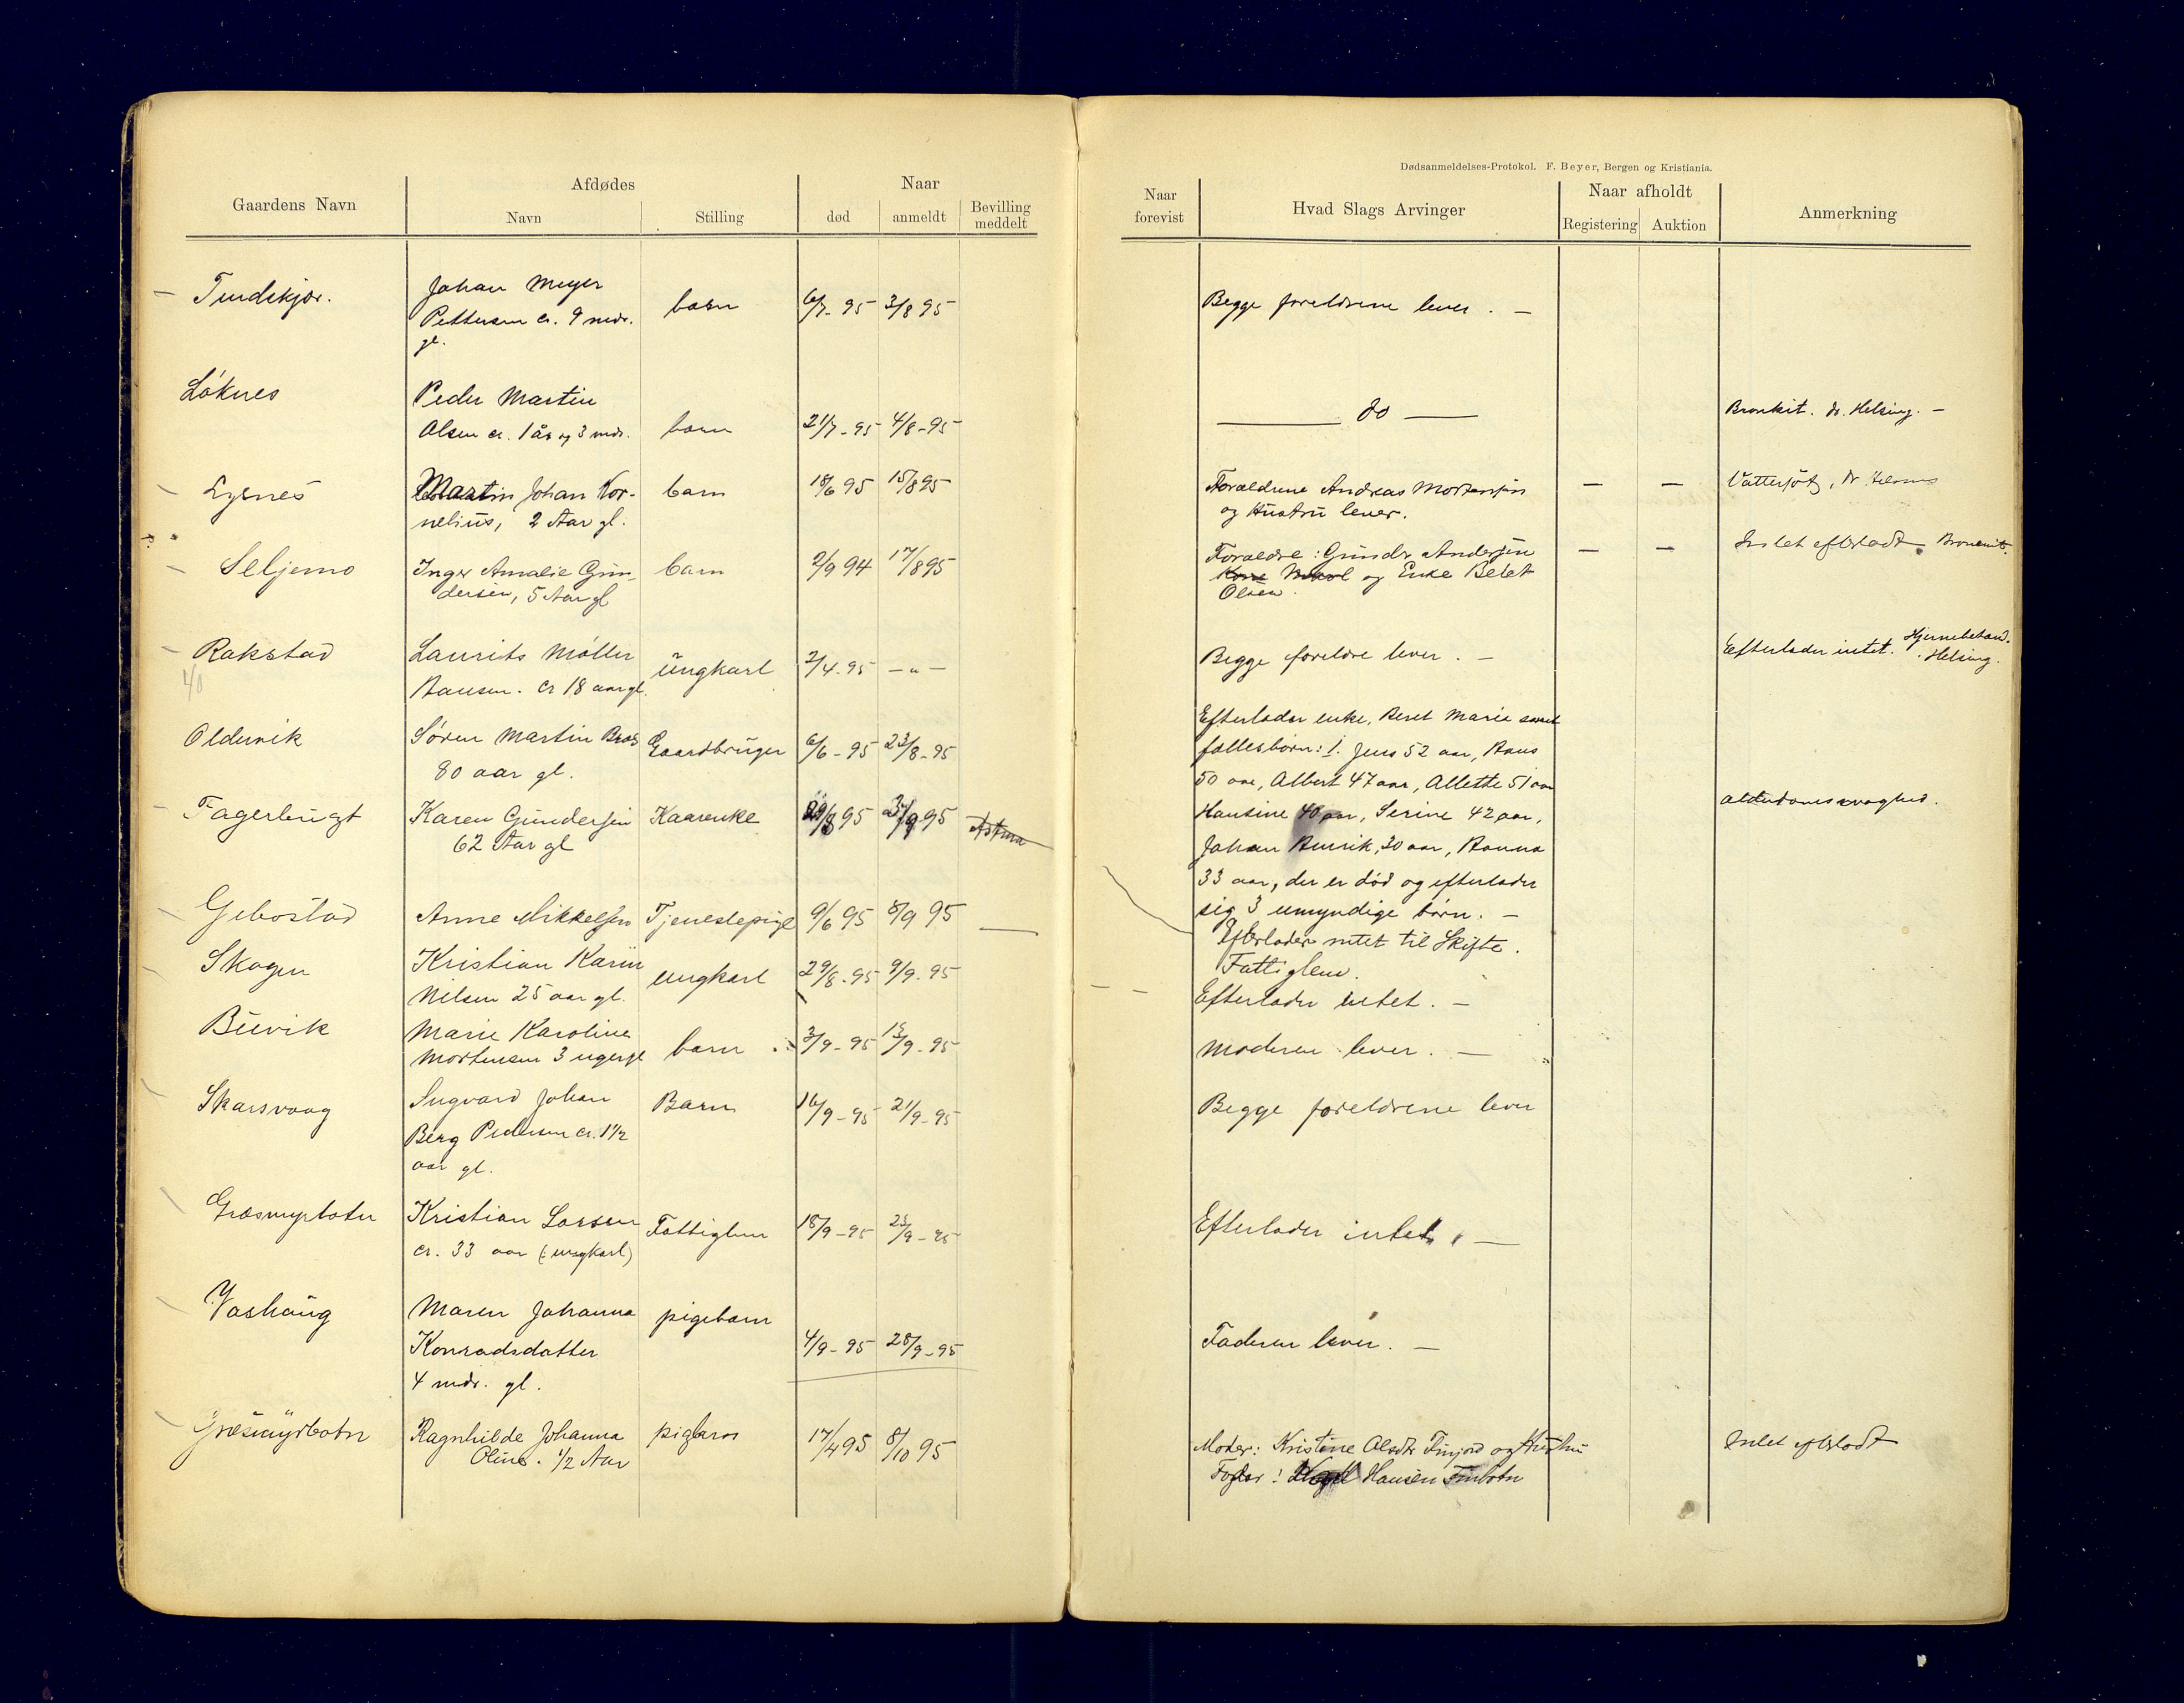 Dødsanmeldelses-Protokol. F. Beyer, Bergen og Kristiania.
Gaardens Navn
Afdødes
Navn
Stilling
Naar
død
anmeldt
Bevilling meddelt
Naar forevist
Hvad Slags Arvinger
Naar afholdt
Registering
Auktion
Anmerkning
Johan Meyer
Pettersen cr. 9 mdr.
gl.
barn
6/7-95 3/8 95
Begge foreldrene lever. —
Løknes
Peder Martin
Olsen cr. 1 år og 3 mdr.
barn
21/7-95 4/8-95
— do —
Bronkit. dr. Helsing. —
Lysnes
Martin Johan Kor-
nelius, 2 Aar gl.
barn
18/6 95 15/8 95
Foraeldrene Andreas Mortensen
og Hustru lever.
— —
Seljemo
Inger Amalie Gun-
dersen, 5 Aar gl
barn
2/9 94 17/8 95
Foraeldre: Gunder Andersen
og Enke Beret
Olsen.
— —
Intet efterladt.
Rakstad
40
Laurits Møller
Hansen. cr 18 aar gl.
ungkarl
2/4-95 — " —
Begge foreldre lever. —
Efterlader intet.
Helsing.
Oldervik
Søren Martin
80 aar gl.
Gaardbruger
6/6-95 23/8-95
Efterlader enke, Beret Marie samt
fællesbørn: 1. Jens 52 aar, Hans
50 aar, Albert 47 aar, Allette 51 aar
Hansine 40 aar, Serine 42 aar,
Johan Henrik, 30 aar, Hanna
33 aar, der er død og efterlader
sig 3 umyndige børn. —
alderdomssvaghed.
Fagerbugt
Karen Gundersen
62 Aar gl
Kaarenke
Astma
Gebostad
Anne Mikkelsen
Tjenestepige
9/6 95 8/9 95
Efterlader intet til Skifte.
Fattiglem.
Skogen
Kristian
Nilsen 25 aar gl.
ungkarl
29/8-95 9/9-95
Efterlader intet. —
Buvik
Marie Karoline
Mortensen 3 uger gl
barn
3/9-95 15/9-95
Moderen lever. —
Skarsvaag
Sigvard Johan
Berg Pedersen cr. 1 1/2
aar gl.
Barn
16/9-95 21/9-95
Begge foreldrene lever
Græsmyrbotn
Kristian Larsen
cr. 33 aar (ungkarl)
Fattiglem
18/9-95
Efterlader intet. —
Vashaug
Maren Johanna
Konradsdatter
4 mdr. gl.
pigebarn
4/9-95 28/9-95
Faderen lever. —
Græsmyrbotn
Ragnhilde Johanna
Oline. 1/2 Aar
pigbarn
17/4 95 8/10 95
Moder: Kristine Olsdtr Finjord og
Fader: Hansen Finbotn
Intet efterladt